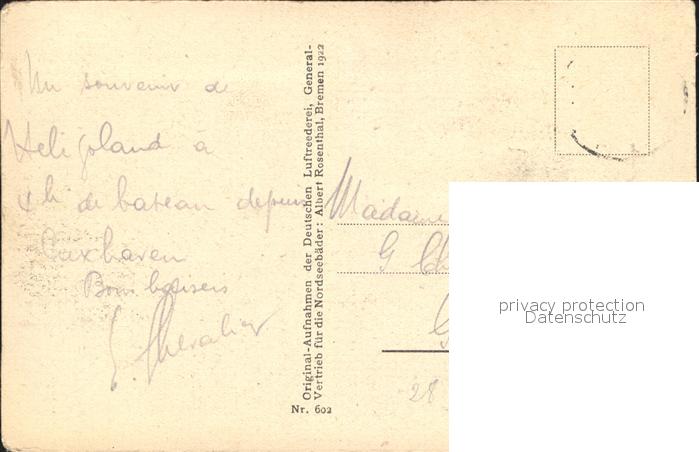 Un souvenir de
Heligoland à
4h de bateau depuis
Cuxhaven
Bons baisers
Chevalier
Original-Aufnahmen der Deutschen Luftreederei, General-
Vertrieb für die Nordseebäder: Albert Rosenthal, Bremen 1922
Nr. 602
Madame
G Ch
G
28
privacy protection
Datenschutz